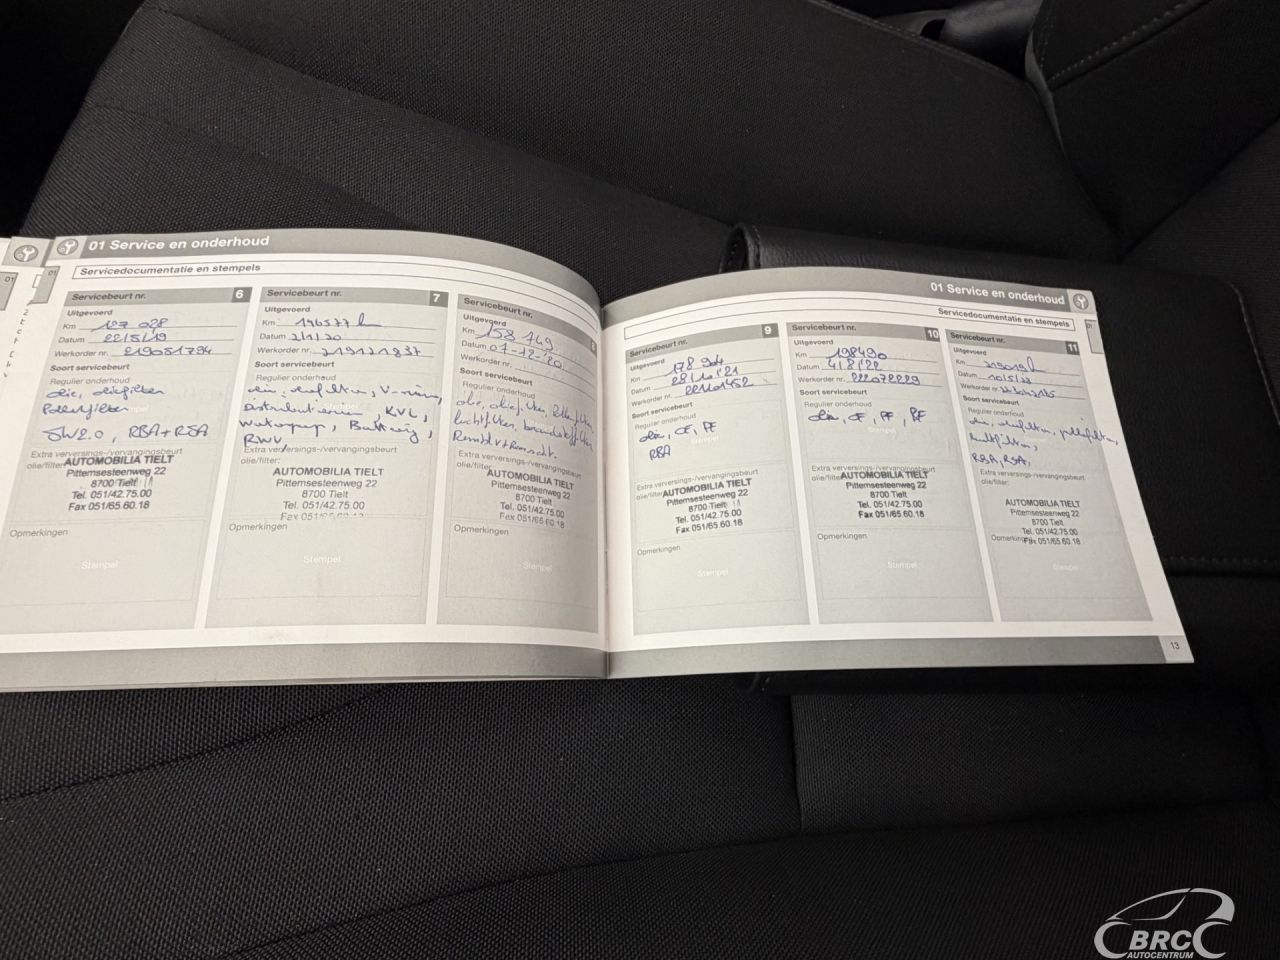 01 Service en onderhoud
Servicedocumentatie en stempels
Servicebeurt nr. 6
Uitgevoerd
Km 127 028
Datum 22/5/19
Werkorder nr. 219051794
Soort servicebeurt
Regulier onderhoud
olie, oliefilter
Pollenfilter
SW2.0, RBA+RSA
Extra verversings-/vervangingsbeurt
olie/filter:
AUTOMOBILIA TIELT
Pittemsesteenweg 22
8700 Tielt
Tel. 051/42.75.00
Fax 051/65.60.18
Opmerkingen
Stempel
Servicebeurt nr. 7
Uitgevoerd
Km 146577
Datum 2/1/20
Werkorder nr. 219121837
Soort servicebeurt
Regulier onderhoud
KVL,
RWV
Extra verversings-/vervangingsbeurt
olie/filter:
AUTOMOBILIA TIELT
Pittemsesteenweg 22
8700 Tielt
Tel. 051/42.75.00
Fax 051/65.60.18
Opmerkingen
Stempel
Servicebeurt nr. 8
Uitgevoerd
Km 158 749
Datum 07-12-'20
Werkorder nr.
Soort servicebeurt
Regulier onderhoud
Extra verversings-/vervangingsbeurt
olie/filter:
AUTOMOBILIA TIELT
Pittemsesteenweg 22
8700 Tielt
Tel. 051/42.75.00
Fax 051/65.60.18
Opmerkingen
Stempel
01 Service en onderhoud
Servicedocumentatie en stempels
01
Servicebeurt nr. 9
Uitgevoerd
Km 178 904
Datum 28/10/'21
Werkorder nr. 221101452
Soort servicebeurt
Regulier onderhoud
olie, OF, PF
RBA
Extra verversings-/vervangingsbeurt
olie/filter:
AUTOMOBILIA TIELT
Pittemsesteenweg 22
8700 Tielt
Tel. 051/42.75.00
Fax 051/65.60.18
Opmerkingen
Stempel
Servicebeurt nr. 10
Uitgevoerd
Km 198490
Datum 4/8/22
Werkorder nr. 222072229
Soort servicebeurt
Regulier onderhoud
olie, OF, PF, BF
Extra verversings-/vervangingsbeurt
olie/filter:
AUTOMOBILIA TIELT
Pittemsesteenweg 22
8700 Tielt
Tel. 051/42.75.00
Fax 051/65.60.18
Opmerkingen
Stempel
Servicebeurt nr. 11
Uitgevoerd
Km
Datum
Werkorder nr.
Soort servicebeurt
Regulier onderhoud
olie, oliefilter, pollenfilter,
luchtfilter,
RBA, RSA,
Extra verversings-/vervangingsbeurt
olie/filter:
AUTOMOBILIA TIELT
Pittemsesteenweg 22
8700 Tielt
Tel. 051/42.75.00
Fax 051/65.60.18
Opmerkingen
Stempel
13
BRC
AUTOCENTRUM